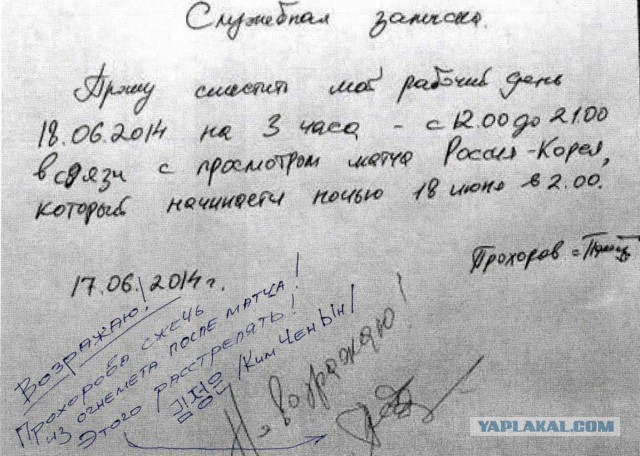 Служебная записка.
Прошу сместить мой рабочий день
18.06.2014 на 3 часа - с 12.00 до 21.00
в связи с просмотром матча Россия-Корея,
который начинается ночью 18 июня в 2.00.
Прохоров
17.06.2014г.
Возражаю!
Прохорова сжечь
из огнемета после матча!
Этого расстрелять!
/Ким Чен Ын/
Не возражаю!
YAPLAKAL.COM